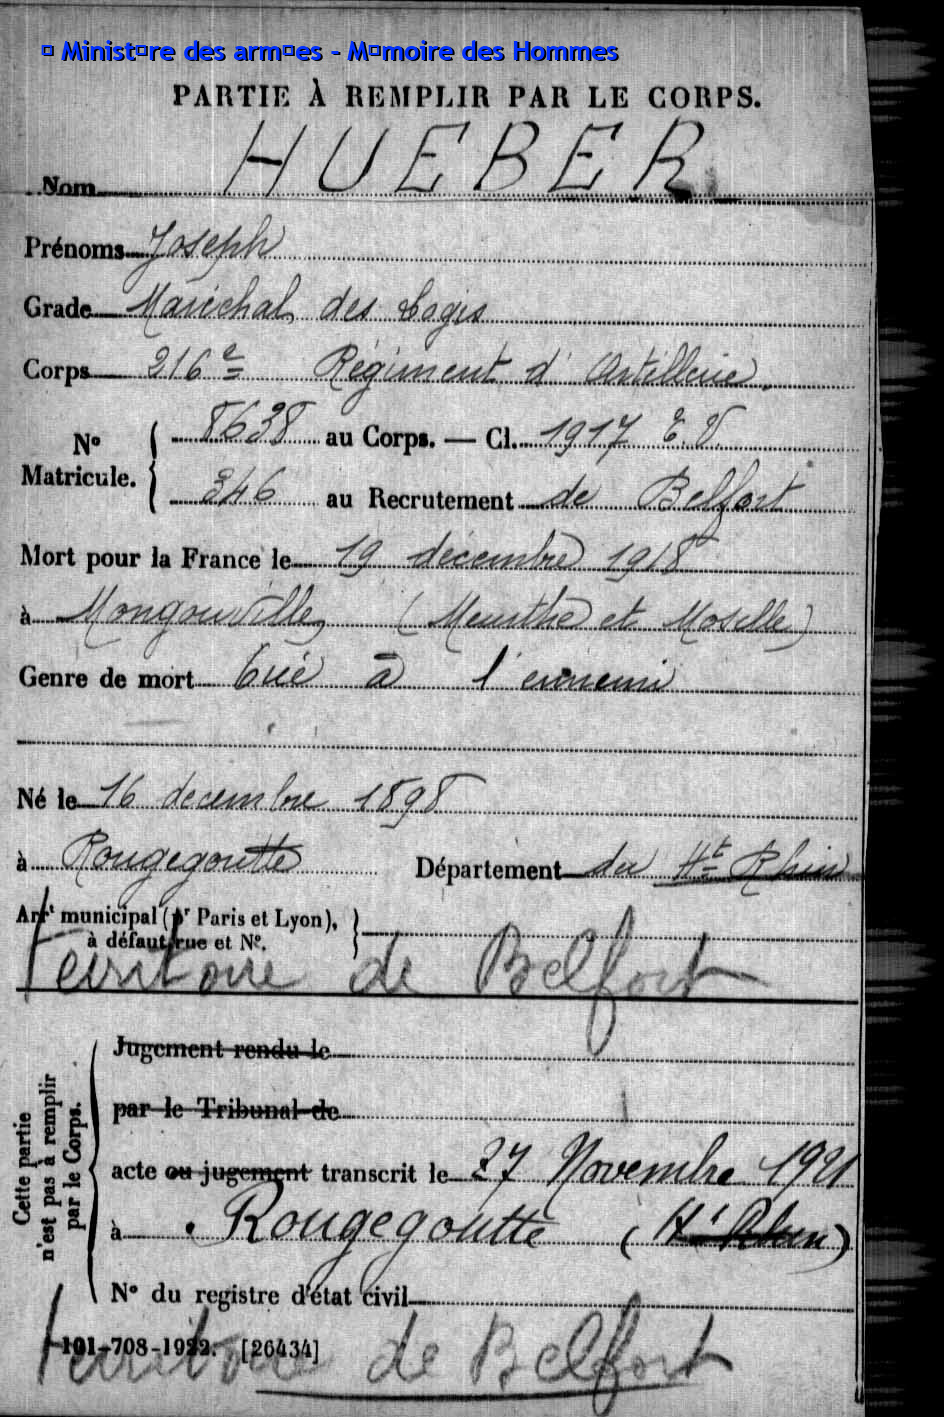 © Ministère des armées - Mémoire des Hommes
PARTIE À REMPLIR PAR LE CORPS.
Nom HUEBER
Prénoms Joseph
Grade Maréchal des Logis
Corps 216e Régiment d'Artillerie
N° Matricule. 8638 au Corps. — Cl. 1917 E.V.
346 au Recrutement de Belfort
Mort pour la France le 19 décembre 1918
à Mongonville (Meurthe et Moselle)
Genre de mort tué à l'ennemi
Né le 16 decembre 1898
à Rougegoutte Département du Ht Rhin
Arrt municipal (pr Paris et Lyon),
à défaut rue et N°.
Territoire de Belfort
Cette partie n'est pas à remplir par le Corps.
Jugement rendu le
par le Tribunal de
acte ou jugement transcrit le 27 Novembre 1921
à Rougegoutte (Ht Rhin)
N° du registre d'état civil
101-708-1922. [26434]
Territoire de Belfort